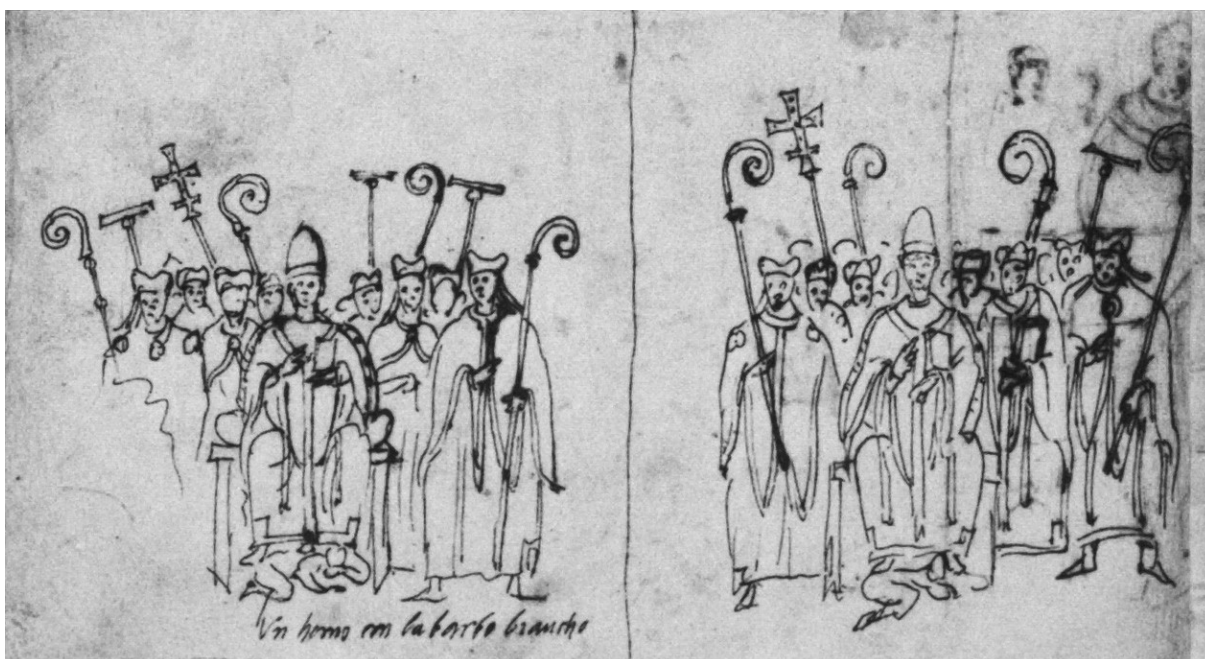 Vn homo con la barba biancha